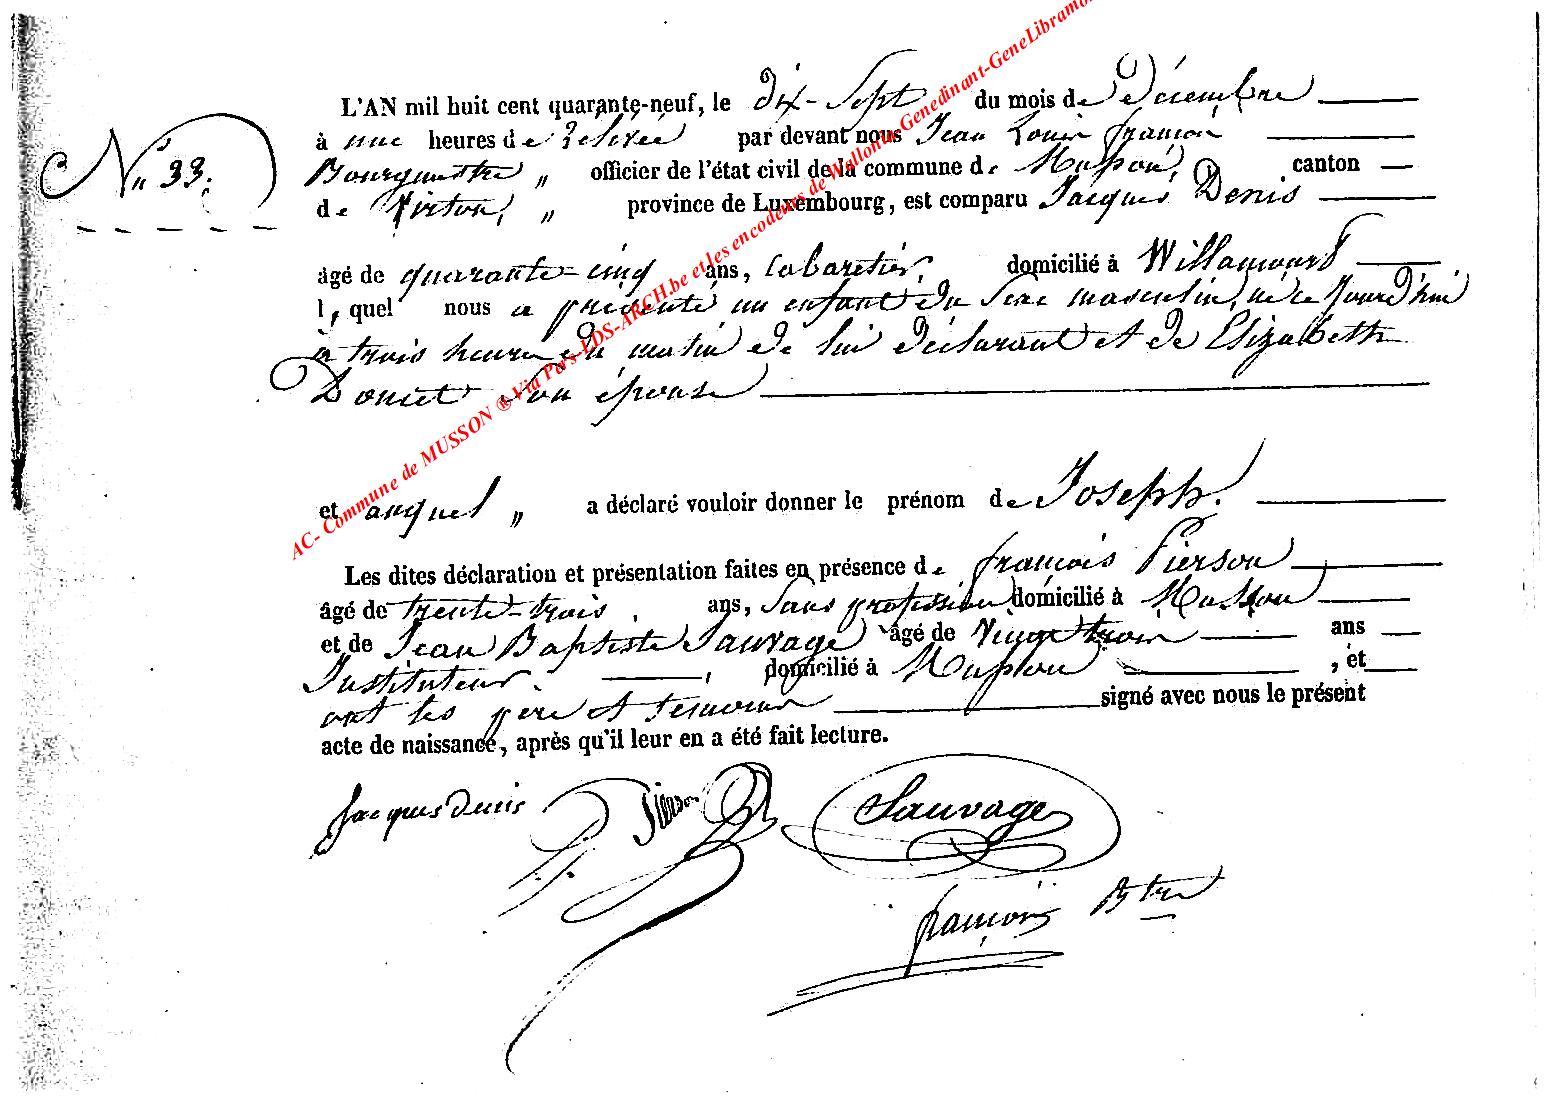 L'AN mil huit cent quarante-neuf, le dix-Sept du mois de Décembre
à une heures de relevée par devant nous Jean Louis françois
N° 33.
Bourgmestre „ officier de l'état civil de la commune de Musson, canton
de Virton, „ province de Luxembourg, est comparu Jacques Denis
âgé de quarante-cinq ans, Cabaretier, domicilié à Willancourt
l, quel nous a présenté un enfant du Sexe masculin, né ce jourd'hui
à trois heures du matin de lui déclarant et de Elizabeth
Doncet son épouse
et auquel „ a déclaré vouloir donner le prénom de Joseph.
Les dites déclaration et présentation faites en présence de françois Pierson
âgé de trente-trois ans, Sans profession domicilié à Musson
et de Jean Baptiste Sauvage âgé de Vingt trois ans
Instituteur. domicilié à Musson , et
ont les père et témoins signé avec nous le présent
acte de naissance, après qu'il leur en a été fait lecture.
Jacques Denis Pierson Sauvage
françois Bgtre
AC- Commune de MUSSON ® Via Pers-LDS-ARCH.be et les encodeurs de Wallonia-Genedinant-GeneLibramo